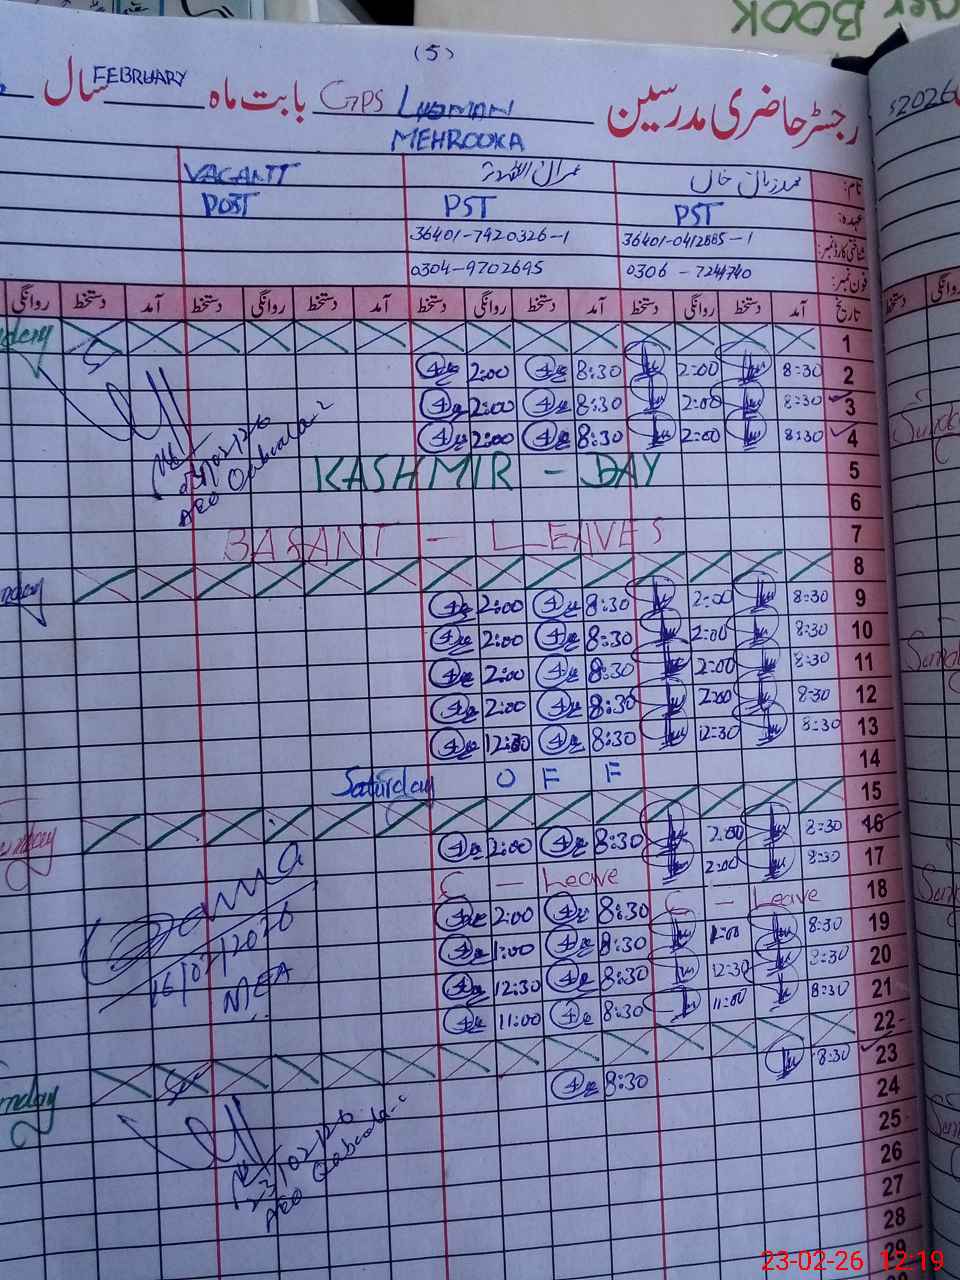 BOOK
(5)
رجسٹر حاضری مدرسین GPS LUQMAN بابت ماہ FEBRUARY سال
MEHROOKA
2026
نام: محمد زمان خان VACANT
عہدہ: PST PST POST
شناختی کارڈ نمبر: 36401-7920326-1
فون نمبر: 0306-7244740 0304-9702695
تاریخ آمد دستخط روانگی دستخط آمد دستخط روانگی دستخط آمد دستخط روانگی دستخط آمد دستخط روانگی
1
2 8:30 2:00 8:30 2:00
3 8:30 2:00 8:30 2:00
4 8:30 2:00 8:30 2:00
5 KASHMIR - DAY
6
7 BASANT - LEAVES
8
9 8:30 2:00 8:30 2:00
10 8:30 2:00 8:30 2:00
11 8:30 2:00 8:30 2:00
12 8:30 2:00 8:30 2:00
13 8:30 12:30 8:30 12:30
14 Saturday OFF
15
16 8:30 2:00 8:30 2:00
17 8:30 2:00 C - Leave
18 C - Leave 8:30 2:00
19 8:30 1:00 8:30 1:00
20 8:30 12:30 8:30 12:30
21 8:30 11:00 8:30 11:00
22
23 8:30 8:30
24
25
26
27
28
29
16/02/2026
MEA
23/02/26
AEO Qaboola-2
23-02-26 12:19